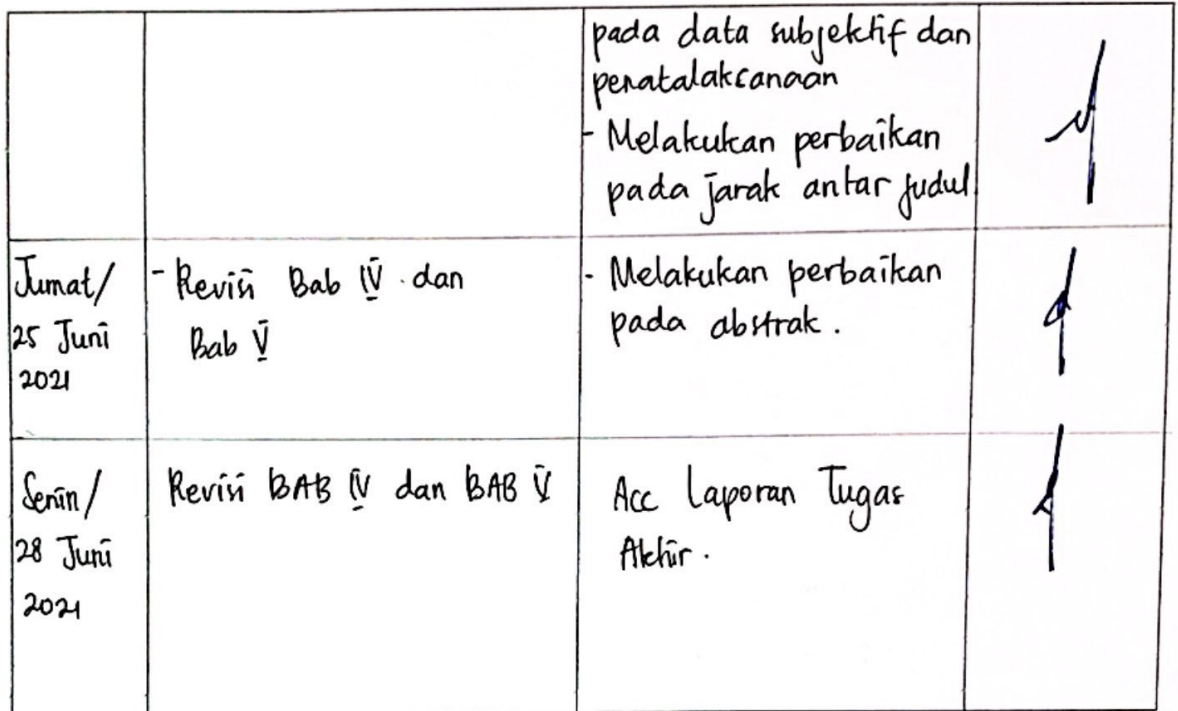 pada data subjektif dan
penatalaksanaan
- Melakukan perbaikan
pada jarak antar judul
Jumat/
25 Juni
2021
- Revisi Bab IV dan
Bab V
- Melakukan perbaikan
pada abstrak.
Senin/
28 Juni
2021
Revisi BAB IV dan BAB V
Acc Laporan Tugas
Akhir.